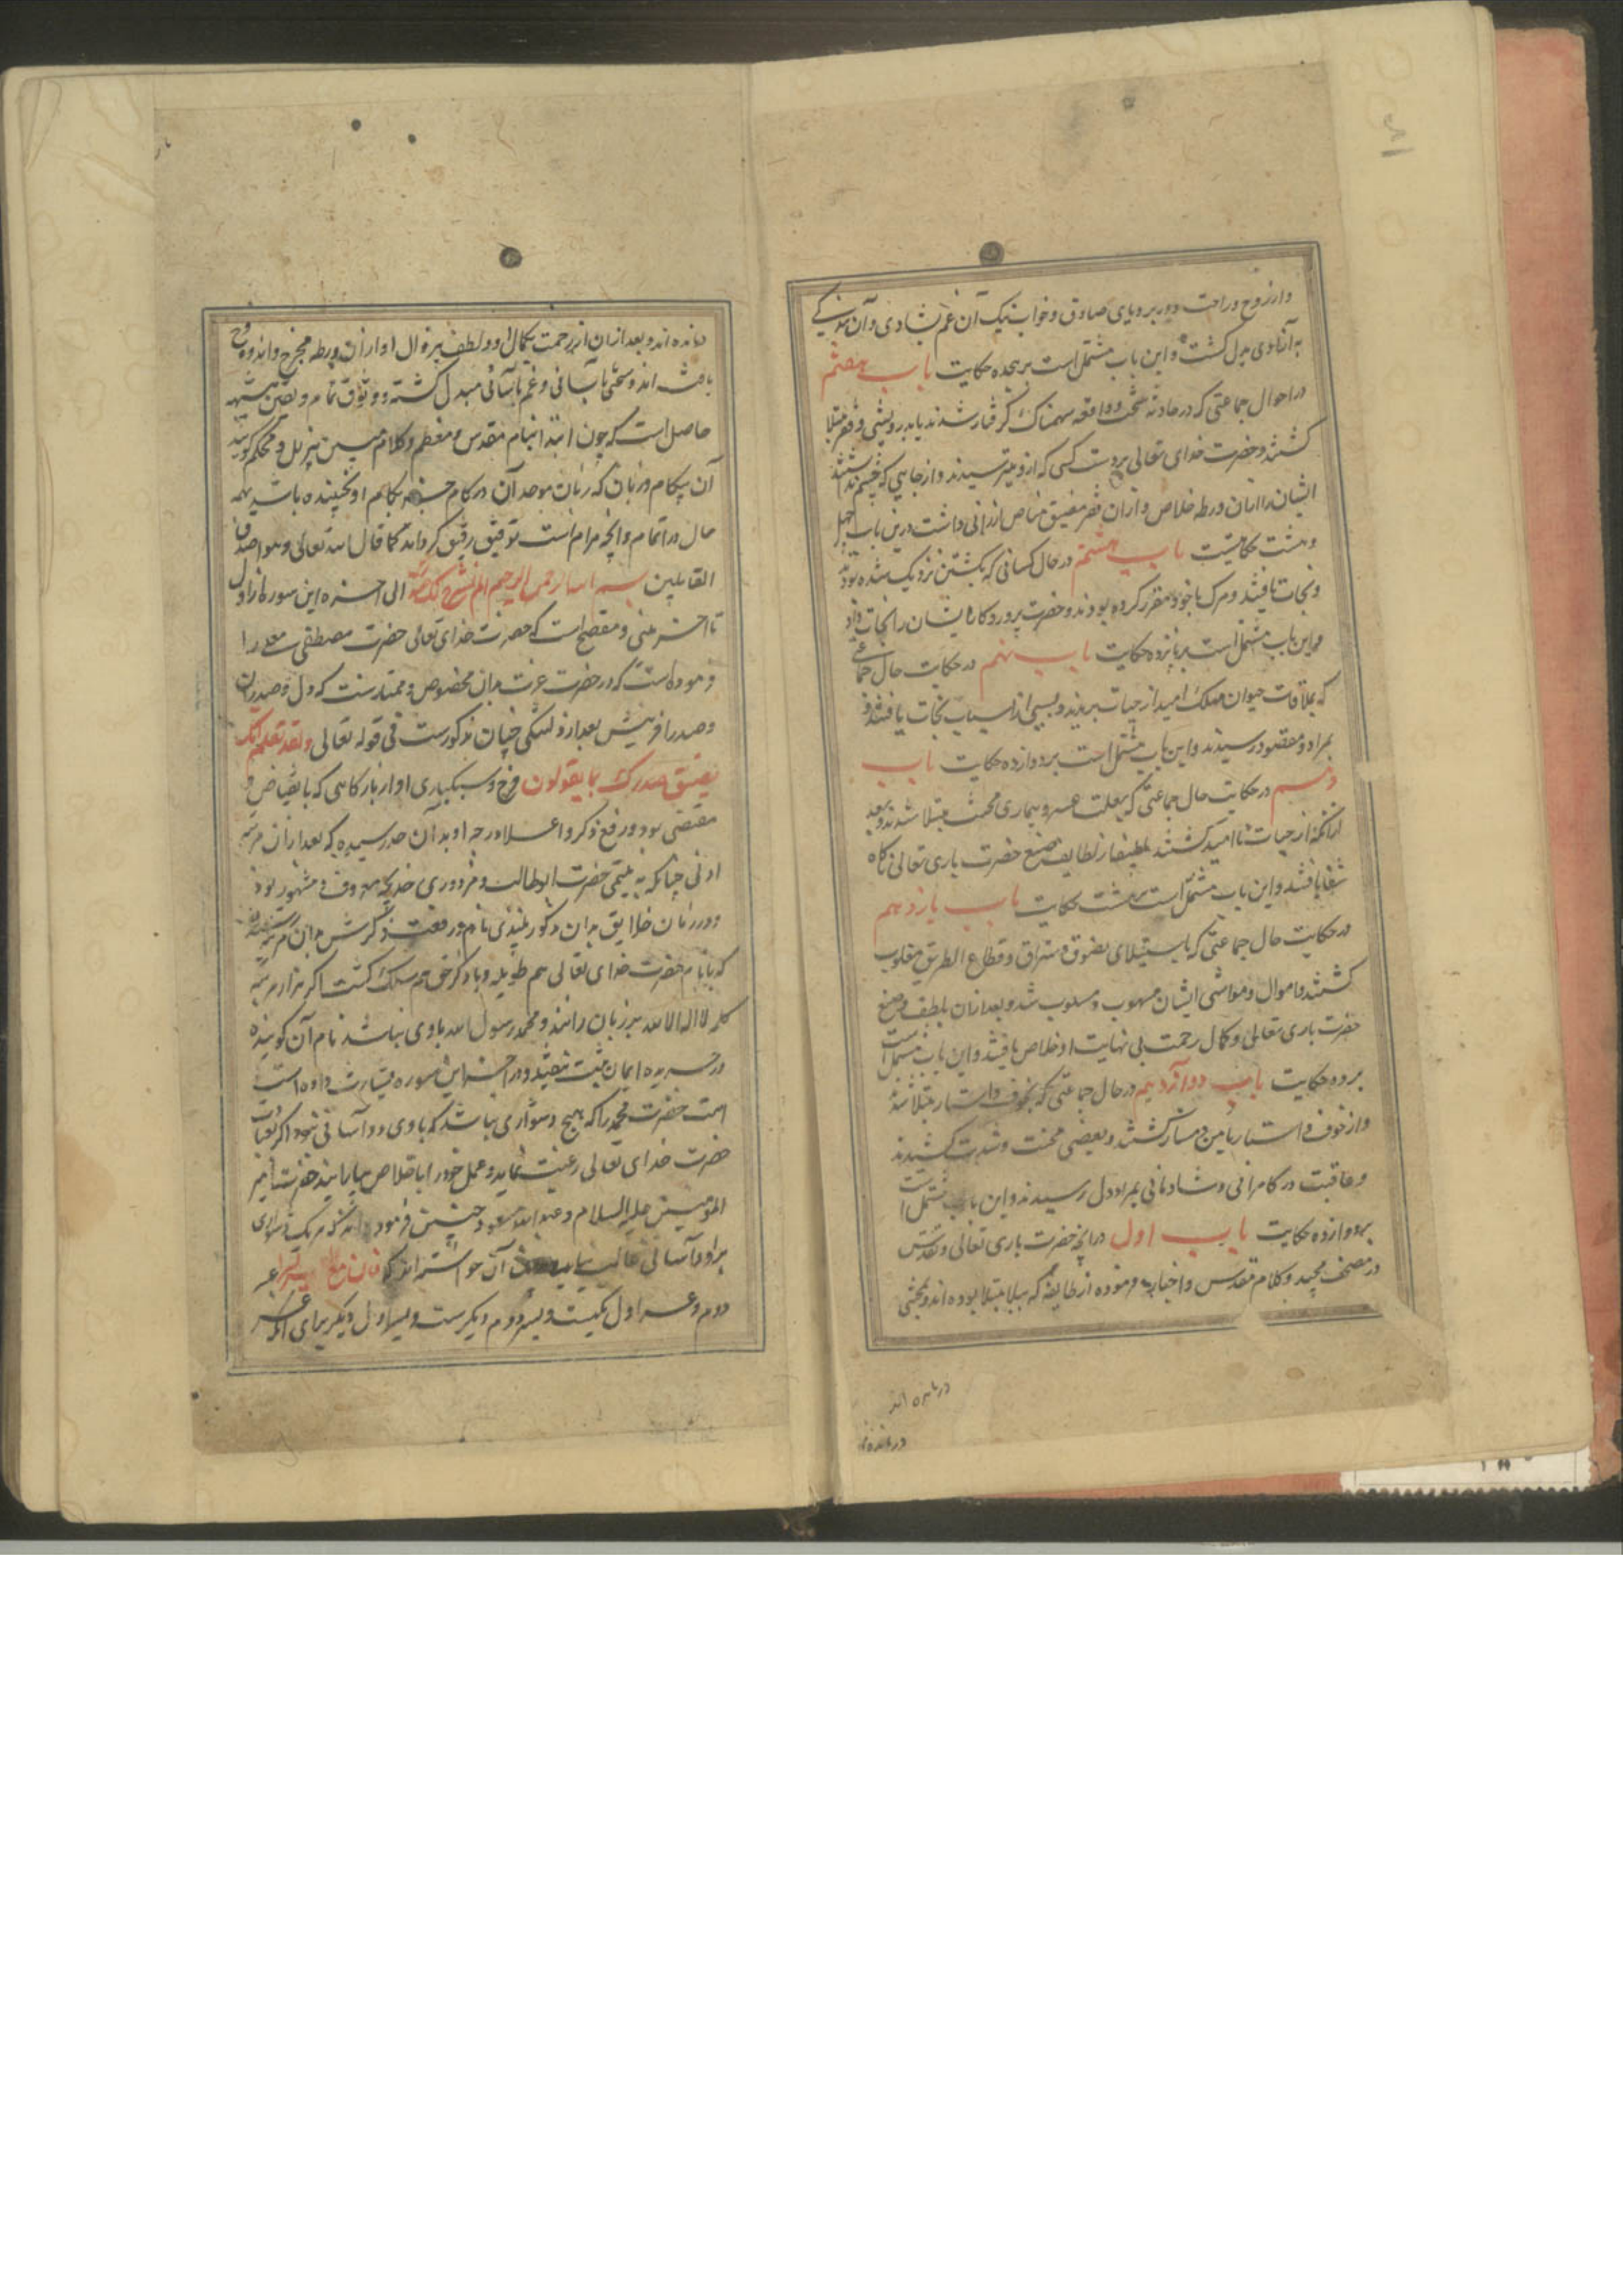 و از روح و راحت دور برویای صادق و خواب نیک آن غم بشادی و آن
به آزادی بدل کشت و این باب مشتمل است بر هجده حکایت باب هفتم
در احوال جماعتی که در حادثه سخت و واقعه سهمناک کرفتار شدند یا بدرویشی و فقر مبتلا
کشتند و حضرت خدای تعالی بردست کسی که ازو می‌ترسیدند و از جایی که چشم نداشتند
ایشان را از آن ورطه خلاص و از آن فقر مضیق مناص ارزانی داشت درین باب چهل
و هشت حکایتست باب هشتم در حال کسانی که بکشتن نزدیک شده بودند
و نجات یافتند و مرک با خود مقرر کرده بودند و حضرت پروردکار ایشان را نجات داد
و این باب مشتمل است بر پانزده حکایت باب نهم در حکایت حال جماعتی
که بملاقات حیوان مهلک امید از حیات ببریدند و بسببی از اسباب نجات یافتند و
بمراد و مقصود رسیدند و این باب مشتمل است بر دوازده حکایت باب
دهم در حکایت حال جماعتی که بعلت عسر و بیماری محنت مبتلا شدند و بعد
از آنکه از حیات ناامید کشتند بلطیفه از لطایف صنع حضرت باری تعالی
شفا یافتند و این باب مشتمل است بر هشت حکایت باب یازدهم
در حکایت حال جماعتی که باستیلای لصوق و سراق و قطاع الطریق مغلوب
کشتند و اموال و مواشی ایشان منهوب و مسلوب شد و بعد از آن بلطف و صنع
حضرت باری تعالی و کمال رحمت بی نهایت او خلاص یافتند و این باب مشتمل است
بر ده حکایت باب دوازدهم در حال جماعتی که بخوف و استتار مبتلا شدند
و از خوف و استتار با من دمساز کشتند و بعضی محنت و شدت کشیدند
و عاقبت در کامرانی و شادمانی بمراد دل رسیدند و این باب مشتمل است
بدوازده حکایت باب اول در آنچه حضرت باری تعالی و تقدس
در مصحف مجید و کلام مقدس و اخبار فرموده از طایفه که ببلا مبتلا بوده اند و بمحنتی
درمانده اند
درمانده
مانده اند و بعد از آن از رحمت بکمال و لطف بیزوال او از آن ورطه مخرج و اندوه فرح
یافته اند و سختی بآسانی و غم بآسانی مبدل کشته و وثوق تمام و یقین بی شبهه
حاصل است که چون ابتدا بنام مقدس و معظم و کلام مبین منزل و محکم کویند
آن بکام و زبان که زبان موحد آن در کام او نجنبیده باشد همه
حال در اتمام و آنچه مرام است توفیق رفیق کرداند کما قال الله تعالی و هو اصدق
القایلین بسم الله الرحمن الرحیم الم نشرح لک صدرک الی آخره این سوره از اول
تا آخر منبی و مفصح است که حضرت خدای تعالی حضرت مصطفی صلعم را
فرموده است که در حضرت عزت بدان مخصوص و ممتدست که دل و صدر
و صدر افزینش بعد از دلتنکی چنان مذکورست فی قوله تعالی و لقد نعلم انک
یضیق صدرک بما یقولون فرح و سبکباری او از بار کناهی که با نقباض و
مقتضی بود و رفع ذکر و اعلا درجه او بدان حد رسیده که بعد از آن مرتبه
ادنی چنانکه به یتیمی حضرت ابوطالب و مزدوری خدیجه معروف و مشهور بود
و در زمان خلایق بدان مذکور بلندی نام و رفعت ذکرش بدان مرتبه
که با نام حضرت خدای تعالی هم طویله و با ذکر حق هم سلک کشت اکر هزار مرتبه
کلمه لا اله الا الله بر زبان رانند و محمد رسول الله با وی نباشد نام آن کوینده
در جریده ایمان مثبت نیفتد و در آخر این سوره بشارت داده است
امت حضرت محمد را که هیچ دشواری نباشد که با وی دو آسانی نبود اکر
حضرت خدای تعالی رغبت نماید و عمل خود را باخلاص بیاراید حضرت امیر
المؤمنین علیه السلام و عبدالله مسعود چنین فرموده اند که هرکز یک دشواری
بر دو آسانی غالب نیاید آن خواسته اند که فان مع العسر یسرا عسر
دوم و عسر اول یکیست و یسر دوم دیکرست و یسر اول دیکر برای آنکه